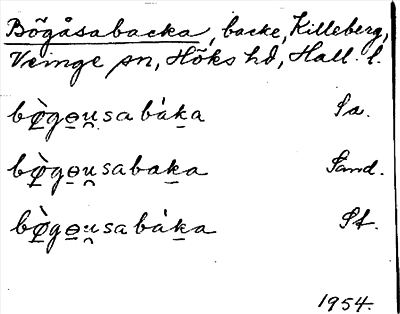 Bögåsabacka, backe, Killeberg,
Veinge sn, Höks hd, Hall. l.
bø̀gɵu̯sabáka Sa.
bø̀gɵu̯sabaka Sand.
bø̀gɵu̯sabáka St.
1954.